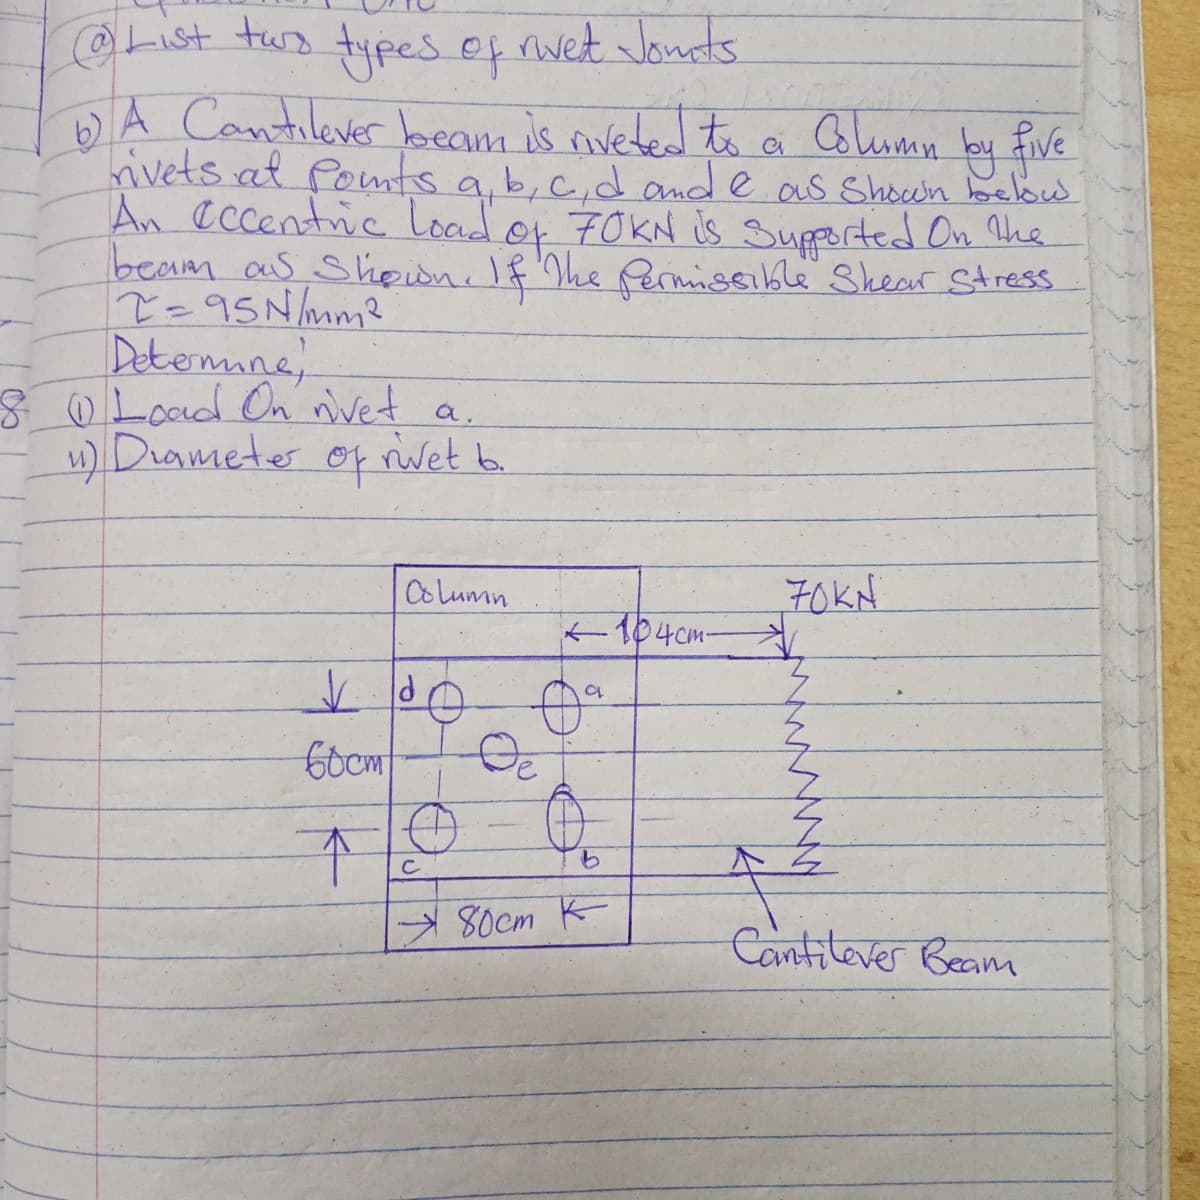 @ List two types of rivet Joints
b) A Cantilever beam is riveted to a Column by five
rivets at Points a, b, c, d and e as shown below
An eccentric load of 70KN is Supported On the
beam as Shown. If the Permissible Shear Stress
τ = 95N/mm²
Determine;
8 (i) Load On rivet a.
ii) Diameter of rivet b.
Column
70KN
104cm
d
a
60cm
e
c
b
80cm
Cantilever Beam